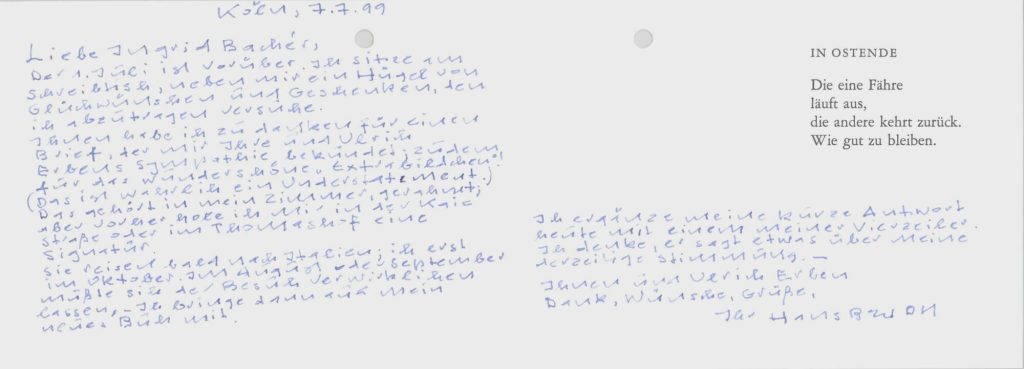 Köln, 7.7.99
Liebe Ingrid Bachér,
Der 1. Juli ist vorüber. Ich sitze am
Schreibtisch, neben mir ein Hügel von
Glückwünschen und Geschenken, den
ich abzutragen versuche.
Ihnen habe ich zu danken für einen
Brief, der mir Ihre und Ulrich
Erbens Sympathie bekundet; zudem
für das wunderschöne „Extrabildchen“!
(Das ist wahrlich ein Understatement.)
Das gehört in mein Zimmer, gerahmt;
aber vorher hole ich mir in der
Straße oder im Thomashof eine
Signatur.
Sie reisen bald nach Italien; ich erst
im Oktober. Im August oder September
müßte sich der Besuch verwirklichen
lassen. – Ich bringe dann auch mein
neues Buch mit.
IN OSTENDE
Die eine Fähre
läuft aus,
die andere kehrt zurück.
Wie gut zu bleiben.
Ich ergänze meine kurze Antwort
heute mit einem meiner Vierzeiler.
Ich denke, er sagt etwas über meine
derzeitige Stimmung. –
Ihnen und Ulrich Erben
Dank, Wünsche, Grüße,
Ihr Hans